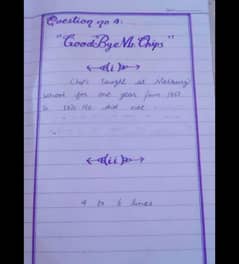 Question no 4:
"Good Bye Mr. Chips"
(i)
Chips taught at Melbury
school for one year from 1869
to 1870. He did not
(ii)
4 to 6 lines